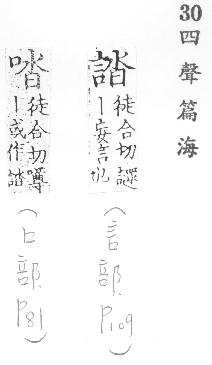 30 四聲篇海
誻
徒合切
丨妄言也
（言部. P109）
徒合切噂
丨或作誻
（口部. P81）